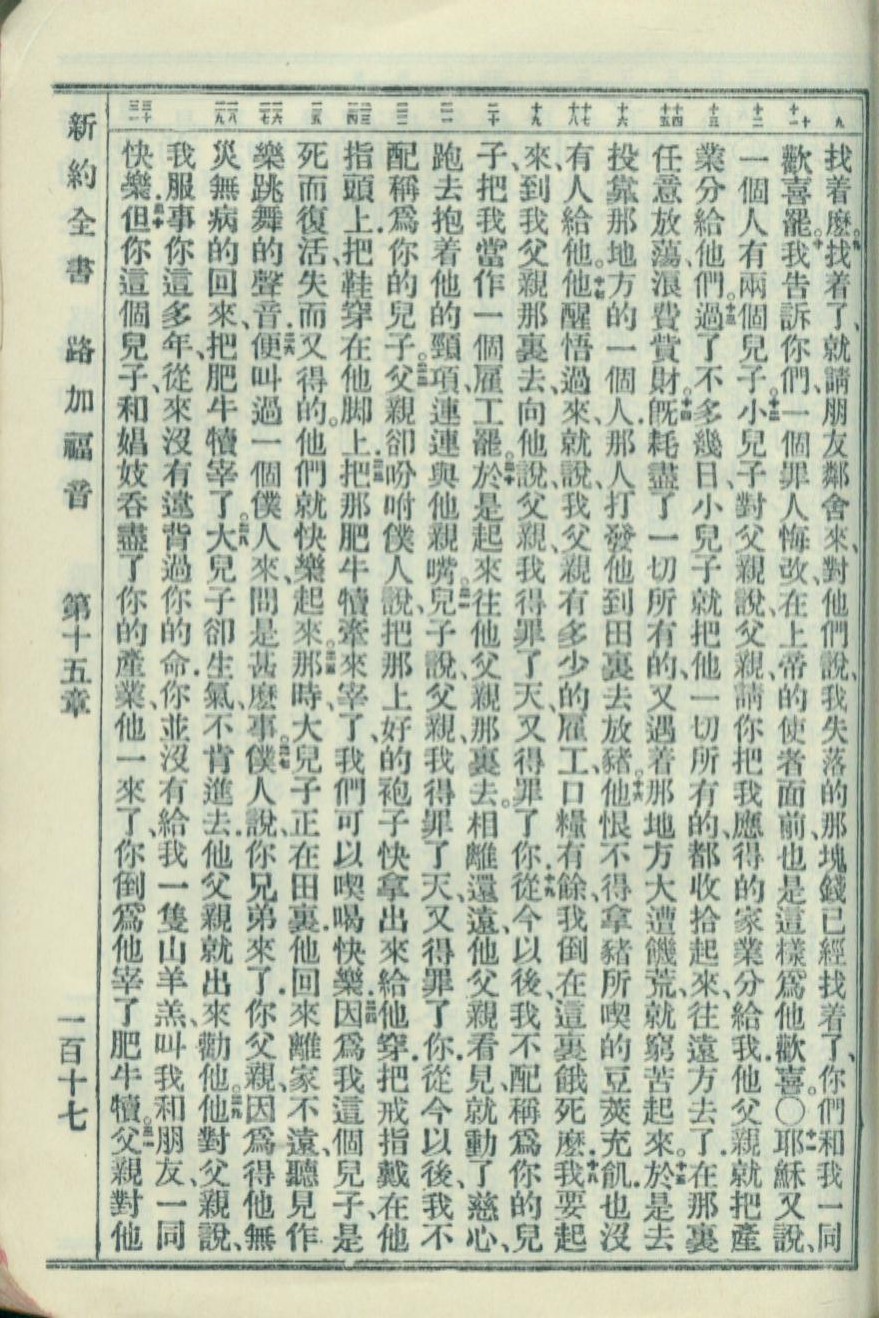 九
找着麽。九找着了、就請朋友鄰舍來、對他們說、我失落的那塊錢已經找着了、你們和我一同
十 十一
歡喜罷。十我告訴你們、一個罪人悔改、在上帝的使者面前、也是這樣爲他歡喜。〇十一耶穌又說、
十二
一個人有兩個兒子。十二小兒子對父親說、父親請你把我應得的家業分給我.他父親就把產
十三
業分給他們。十三過了不多幾日、小兒子就把他一切所有的、都收拾起來、往遠方去了.在那裏
十四 十五
任意放蕩、浪費貲財。十四旣耗盡了一切所有的、又遇着那地方大遭饑荒、就窮苦起來。十五於是去
十六
投靠那地方的一個人.那人打發他到田裏去放豬。十六他恨不得拿豬所喫的豆莢充飢.也沒
十七 十八
有人給他。十七他醒悟過來、就說、我父親有多少的雇工、口糧有餘、我倒在這裏餓死麽.十八我要起
十九
來、到我父親那裏去、向他說、父親、我得罪了天、又得罪了你.十九從今以後、我不配稱爲你的兒
二十
子、把我當作一個雇工罷。二十於是起來往他父親那裏去。相離還遠、他父親看見、就動了慈心、
二一
跑去抱着他的頸項、連連與他親嘴。二一兒子說、父親、我得罪了天、又得罪了你.從今以後、我不
二二
配稱爲你的兒子。二二父親卻吩咐僕人說、把那上好的袍子快拿出來給他穿.把戒指戴在他
二三 二四
指頭上.把鞋穿在他脚上.二三把那肥牛犢牽來宰了、我們可以喫喝快樂.二四因爲我這個兒子、是
二五
死而復活、失而又得的。他們就快樂起來。二五那時、大兒子正在田裏.他回來離家不遠、聽見作
二六 二七
樂跳舞的聲音.二六便叫過一個僕人來、問是甚麽事。二七僕人說、你兄弟來了.你父親、因爲得他無
二八 二九
災無病的回來、把肥牛犢宰了。二八大兒子卻生氣、不肯進去.他父親就出來勸他。二九他對父親說、
我服事你這多年、從來沒有違背過你的命.你並沒有給我一隻山羊羔、叫我和朋友、一同
三十 三一
快樂.三十但你這個兒子、和娼妓吞盡了你的產業、他一來了、你倒爲他宰了肥牛犢。三一父親對他
新約全書 路加福音 第十五章 一百十七